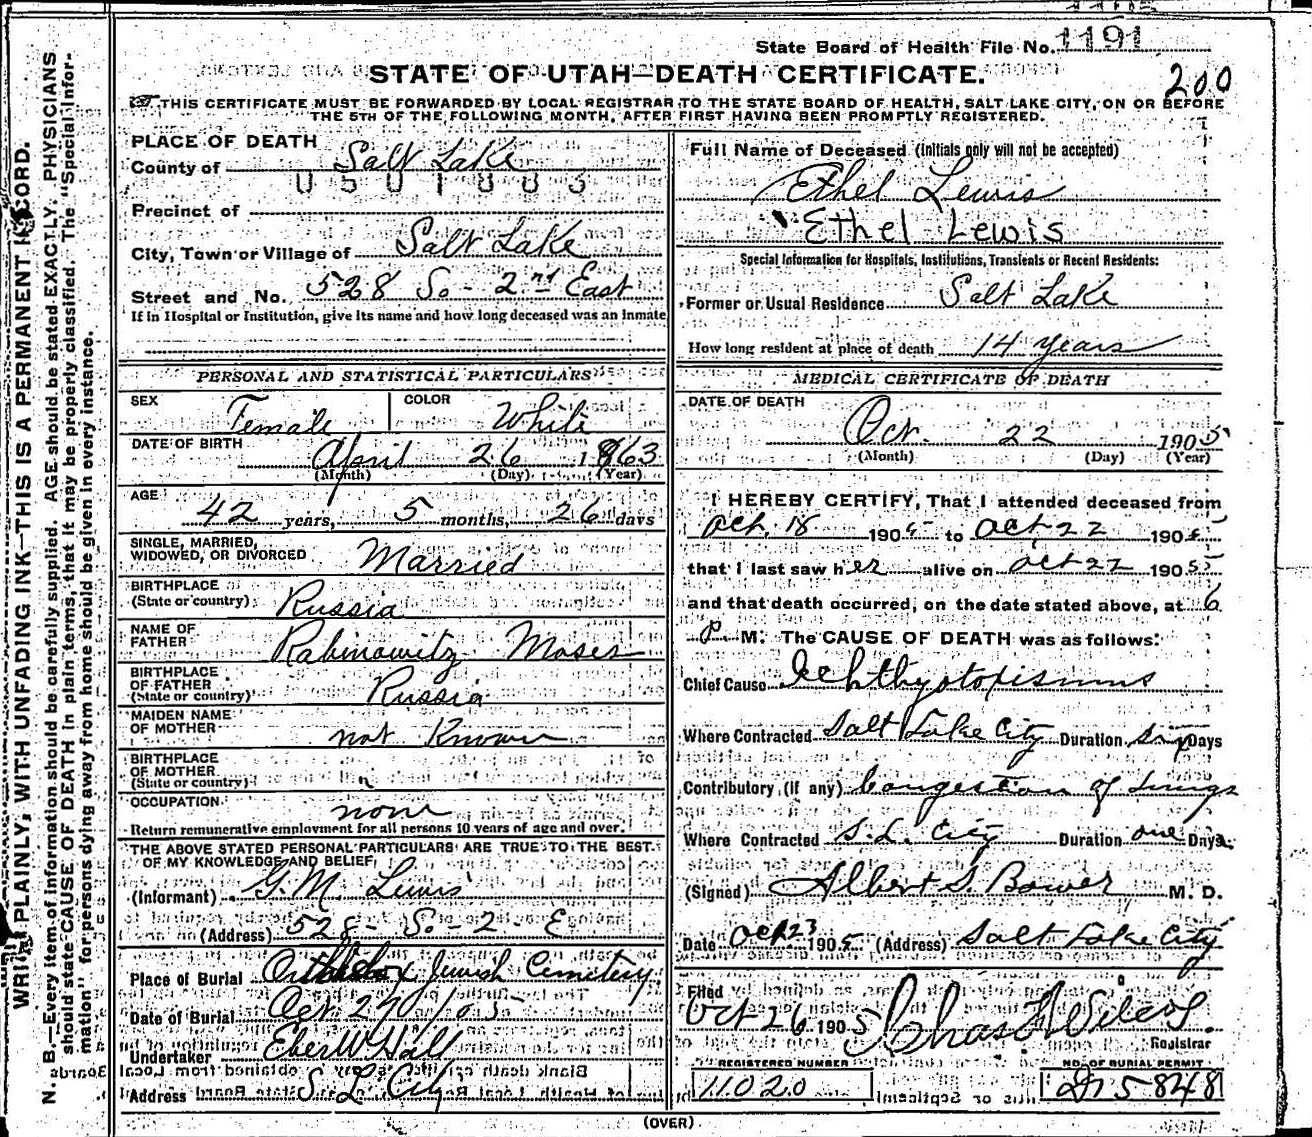 State Board of Health File No. 1191
STATE OF UTAH—DEATH CERTIFICATE.
200
THIS CERTIFICATE MUST BE FORWARDED BY LOCAL REGISTRAR TO THE STATE BOARD OF HEALTH, SALT LAKE CITY, ON OR BEFORE
THE 5TH OF THE FOLLOWING MONTH, AFTER FIRST HAVING BEEN PROMPTLY REGISTERED.
WRITE PLAINLY, WITH UNFADING INK—THIS IS A PERMANENT RECORD.
N. B.—Every item of information should be carefully supplied. AGE should be stated EXACTLY. PHYSICIANS
should state CAUSE OF DEATH in plain terms, that it may be properly classified. The "Special Infor-
mation" for persons dying away from home should be given in every instance.
PLACE OF DEATH
County of Salt Lake
0501883
Precinct of
City, Town or Village of Salt Lake
Street and No. 528 So - 2nd East
If in Hospital or Institution, give its name and how long deceased was an inmate
PERSONAL AND STATISTICAL PARTICULARS
SEX Female COLOR White
DATE OF BIRTH April 26 1863
(Month) (Day) (Year)
AGE 42 years, 5 months, 26 days
SINGLE, MARRIED,
WIDOWED, OR DIVORCED Married
BIRTHPLACE
(State or country) Russia
NAME OF
FATHER Rabinowitz Moses
BIRTHPLACE
OF FATHER
(State or country) Russia
MAIDEN NAME
OF MOTHER not Known
BIRTHPLACE
OF MOTHER
(State or country) "
OCCUPATION none
Return remunerative employment for all persons 10 years of age and over.
THE ABOVE STATED PERSONAL PARTICULARS ARE TRUE TO THE BEST
OF MY KNOWLEDGE AND BELIEF,
(Informant) G. M. Lewis
(Address) 528 - So - 2 - E
Place of Burial Orthodox Jewish Cemetery
Date of Burial Oct 27 / 05
Undertaker Eber W Hall
Address S L City
Full Name of Deceased (Initials only will not be accepted)
Ethel Lewis
Ethel Lewis
Special Information for Hospitals, Institutions, Transients or Recent Residents:
Former or Usual Residence Salt Lake
How long resident at place of death 14 years
MEDICAL CERTIFICATE OF DEATH
DATE OF DEATH
Oct. 22 1905
(Month) (Day) (Year)
I HEREBY CERTIFY, That I attended deceased from
Oct. 18 1905 to Oct 22 1905
that I last saw her alive on Oct 22 1905
and that death occurred, on the date stated above, at 6
P M. The CAUSE OF DEATH was as follows:
Chief Cause Ichthyotoxismus
Where Contracted Salt Lake City Duration six Days
Contributory (if any) Congestion of Lungs
Where Contracted S. L. City Duration one Days
(Signed) Albert S. Bower M. D.
Date Oct 23 1905 (Address) Salt Lake City
Filed
Oct 26 1905 Chas. F. Wilcox.
Registrar
REGISTERED NUMBER NO. OF BURIAL PERMIT
11020 D 15848
(OVER)